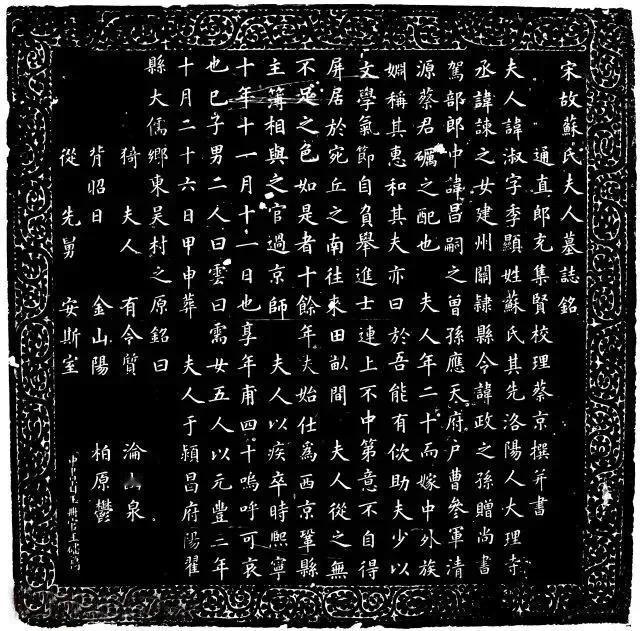 宋故蘇氏夫人墓誌銘
通直郎充集賢校理蔡京撰并書
夫人諱淑字季顯姓蘇氏其先洛陽人大理寺
丞諱諫之女建州關隸縣令諱政之孫贈尚書
駕部郎中諱昌嗣之曾孫應天府户曹參軍清
源蔡君礪之配也 夫人年二十而嫁中外族
姻稱其惠和其夫亦曰於吾能有佽助夫少以
文學氣節自負舉進士連上不中第意不自得
屏居於宛丘之南往來田畝間 夫人從之無
不足之色如是者十餘年夫始仕爲西京鞏縣
主簿相與之官過京師 夫人以疾卒時熙寧
十年十一月十一日也享年甫四十嗚呼可哀
也已子男二人曰雲曰需女五人以元豐二年
十月二十六日甲申葬 夫人于潁昌府陽翟
縣大儒鄉東吳村之原銘曰
猗夫人 有令質 淪山泉
背昭日 金山陽 柏原鬱
從先舅 安斯室